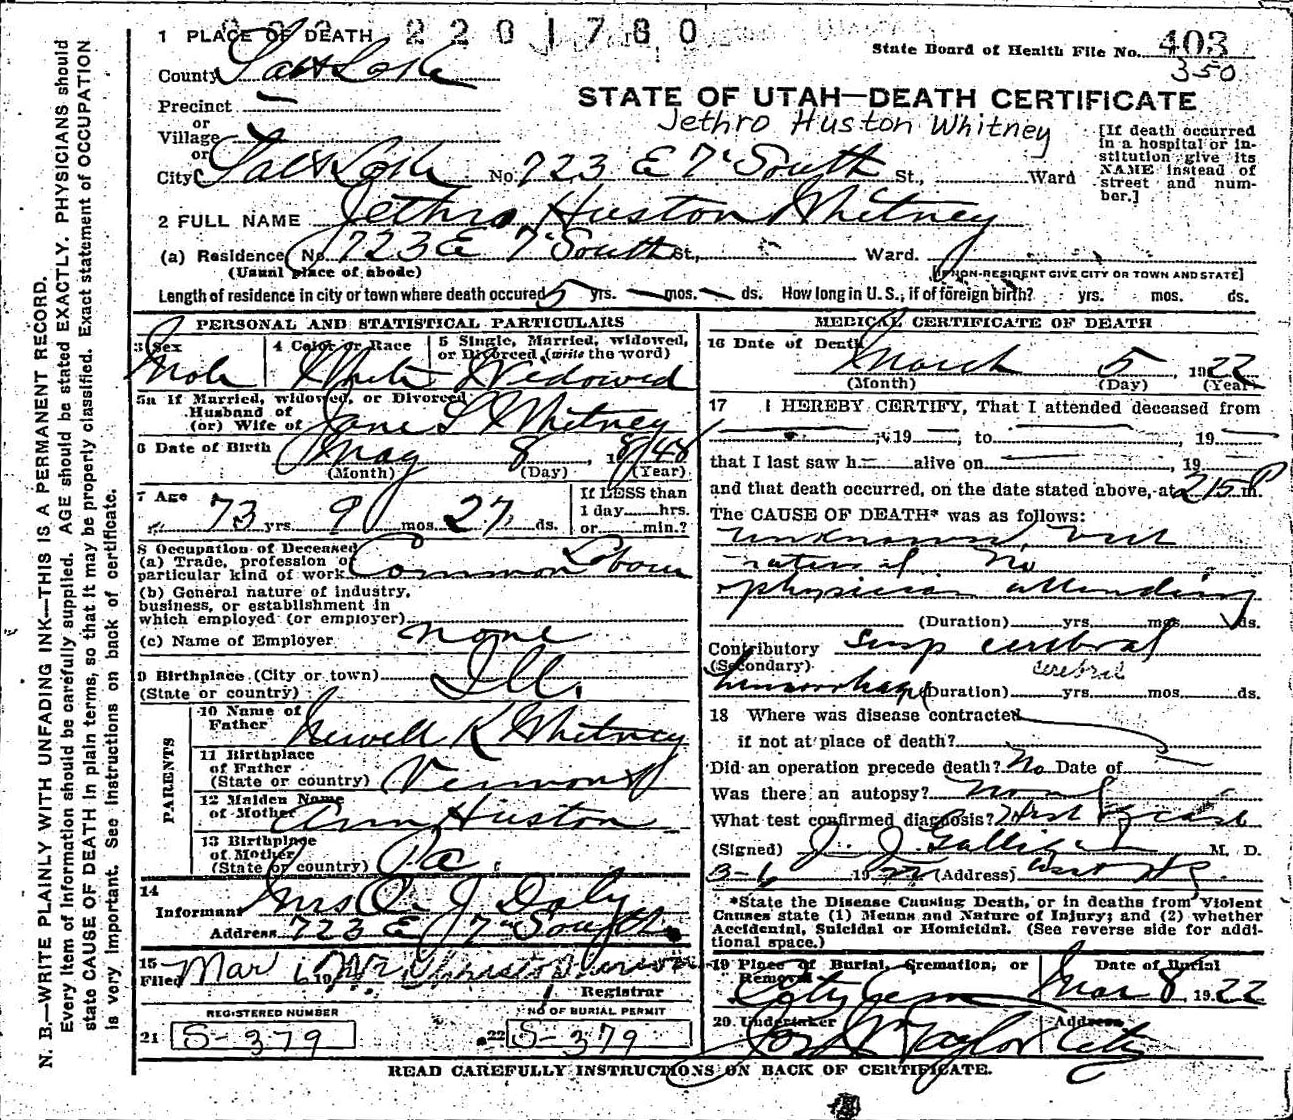 2201780
1 PLACE OF DEATH
State Board of Health File No. 403
350
County Salt Lake
Precinct —
or
Village
or
City Salt Lake No. 723 E 7' South St., Ward
STATE OF UTAH—DEATH CERTIFICATE
Jethro Huston Whitney
[If death occurred
in a hospital or in-
stitution give its
NAME instead of
street and num-
ber.]
2 FULL NAME Jethro Huston Whitney
(a) Residence No. 723 E 7' South St., Ward.
(Usual place of abode) [If NON-RESIDENT GIVE CITY OR TOWN AND STATE]
Length of residence in city or town where death occured 5 yrs. — mos. — ds. How long in U.S., if of foreign birth? yrs. mos. ds.
PERSONAL AND STATISTICAL PARTICULARS
3 Sex 4 Color or Race 5 Single, Married, widowed,
or Divorced (write the word)
Male White Widowed
5a If Married, widowed, or Divorced
Husband of
(or) Wife of Jane S Whitney
6 Date of Birth May 8, 1848
(Month) (Day) (Year)
7 Age 73 yrs. 9 mos. 27 ds.
If LESS than
1 day hrs.
or min.?
8 Occupation of Deceased
(a) Trade, profession or
particular kind of work Common Labour
(b) General nature of industry,
business, or establishment in
which employed (or employer)
(c) Name of Employer none
9 Birthplace (City or town)
(State or country) Ill.
PARENTS
10 Name of
Father Newell K Whitney
11 Birthplace
of Father
(State or country) Vermont
12 Maiden Name
of Mother Ann Huston
13 Birthplace
of Mother
(State or country) Pa.
14
Informant Mrs O. J Daly
Address 723 E 7' South
15
Filed Mar 6 19
Registrar
REGISTERED NUMBER NO OF BURIAL PERMIT
21 S-379 22 S-379
MEDICAL CERTIFICATE OF DEATH
16 Date of Death
March 5, 1922
(Month) (Day) (Year)
17 I HEREBY CERTIFY, That I attended deceased from
, 19 , to , 19
that I last saw h alive on , 19
and that death occurred, on the date stated above, at 215 P m.
The CAUSE OF DEATH* was as follows:
unknown but
natural No
physician attending
(Duration) yrs. mos. ds.
Contributory Sup cerebral
(Secondary) cerebral
hemorrhage (Duration) yrs. mos. ds.
18 Where was disease contracted
if not at place of death?
Did an operation precede death? No Date of
Was there an autopsy?
What test confirmed diagnosis?
(Signed) J. J. Galligan M. D.
3-6 1922 (Address)
*State the Disease Causing Death, or in deaths from Violent
Causes state (1) Means and Nature of Injury; and (2) whether
Accidental, Suicidal or Homicidal. (See reverse side for addi-
tional space.)
19 Place of Burial, Cremation, or
Removal City Cem
Date of Burial
Mar 8 1922
20 Undertaker Address
Jos Wm Taylor City
READ CAREFULLY INSTRUCTIONS ON BACK OF CERTIFICATE.
N. B.—WRITE PLAINLY WITH UNFADING INK—THIS IS A PERMANENT RECORD.
Every item of information should be carefully supplied. AGE should be stated EXACTLY. PHYSICIANS should
state CAUSE OF DEATH in plain terms, so that it may be properly classified. Exact statement of OCCUPATION
is very important. See instructions on back of certificate.